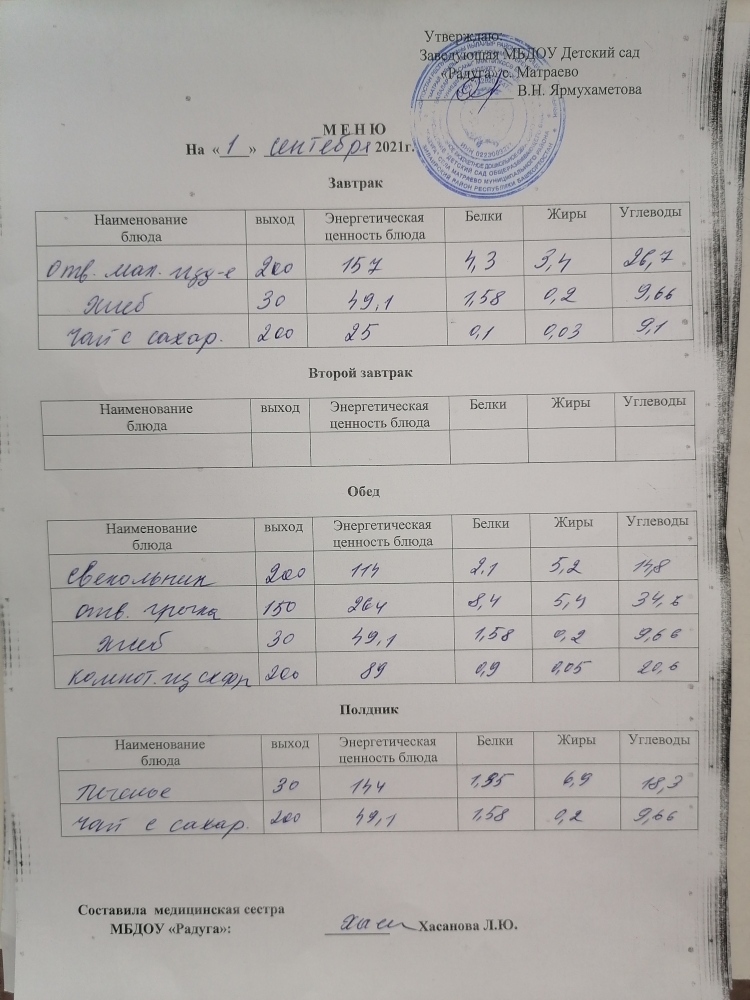 Утверждаю:
Заведующая МБДОУ Детский сад
«Радуга» с. Матраево
В.Н. Ярмухаметова
М Е Н Ю
На «1» сентября 2021г.
Завтрак
Наименование блюда выход Энергетическая ценность блюда Белки Жиры Углеводы
Отв. мак. изд-е 200 157 4,3 3,4 26,7
Хлеб 30 49,1 1,58 0,2 9,66
Чай с сахар. 200 25 0,1 0,03 9,1
Второй завтрак
Наименование блюда выход Энергетическая ценность блюда Белки Жиры Углеводы
Обед
Наименование блюда выход Энергетическая ценность блюда Белки Жиры Углеводы
Свекольник 200 114 2.1 5,2 14,8
отв. гречка 150 264 8,4 5,4 34,6
Хлеб 30 49,1 1,58 0,2 9,66
компот. из сухфр 200 89 0,9 0,05 20,6
Полдник
Наименование блюда выход Энергетическая ценность блюда Белки Жиры Углеводы
Печенье 30 144 1,95 6,9 18,3
Чай с сахар. 200 49,1 1,58 0,2 9,66
Составила медицинская сестра
МБДОУ «Радуга»: Хасанова Л.Ю.